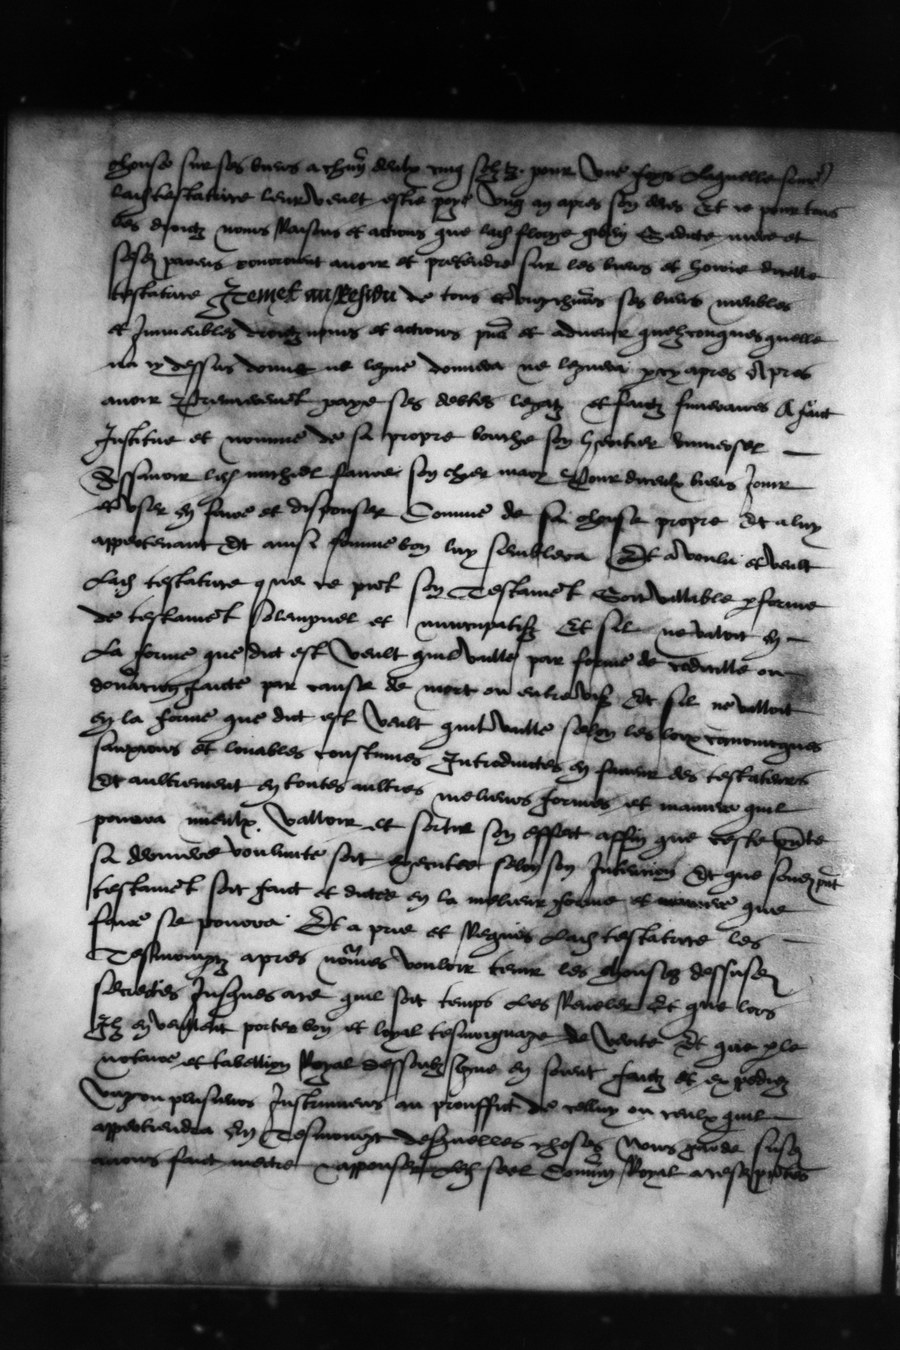 chouse sur ses biens a chun deulx cinq solz tz pour une foys laquelle somme
ladite testatrice leur veult estre paye ung an apres son deces Et ce pour tous
les droictz noms raisons et actions que lad
parens pouroient avoir et pretendre sur les biens et hoirie dicelle
testatrice Item et au residu de tous et ungchuns ses biens meubles
et Immeubles droictz noms et actions pns et advenir quelzconques quelle
na cy dessus donne ne legue donnera ne leguera cy apres Apres
avoir Premierement paye ses debtes legatz et fraictz funeraires A faict
Institue et nomme de sa propre bouche son heritier universel
Assavoir led michiel faure son cher mary Pour diceulx biens Jouir
et user en faire et disposer Comme de sa chouse propre Et a luy
appartenant Et ainsi comme bon luy semblera Et a voulu et veult
Lad testatrice que ce pnt son Testament Soit vallable p forme
de testament solempnel et nuncupatif Et sil ne valoit en
La forme que dict est Veult quil vaille par forme de codicille ou
donation faicte par cause de mort ou entre vifz Et sil ne valloit
en la forme que dict est veult quil vaille selon les loix canonicques
sanctions et louables coustumes Introduictes en faveur des testateurs
Et aultrement en toutes aultres meilieurs formes et maniere quil
pourra mieulx valloir et sortir son effect affin que ceste pnte
sa derniere voulunte soit executee selon son Intencion Et que sond pnt
testament soit faict et dictee en la melieur forme et maniere que
faire se pourra Et a prie et Requis Lad testatrice les
Tesmoingz apres nommes vouloir tenir les chouses dessusd
secrectes Jusques ace quil soit temps Les Reveler Et que lors
Ilz en veulhent porter bon et loyal tesmoignage de verite Et que p le
notaire et tabellion Royal dessoubz signe en soient faictz et expediez
ung ou plusieurs Instrumens au prouffict de celluy ou ceulx quil
appartiendra En Tesmoing desquelles choses Nous garde susd
avons faict mectre apposer led seel Commun Royal a cesd pntes